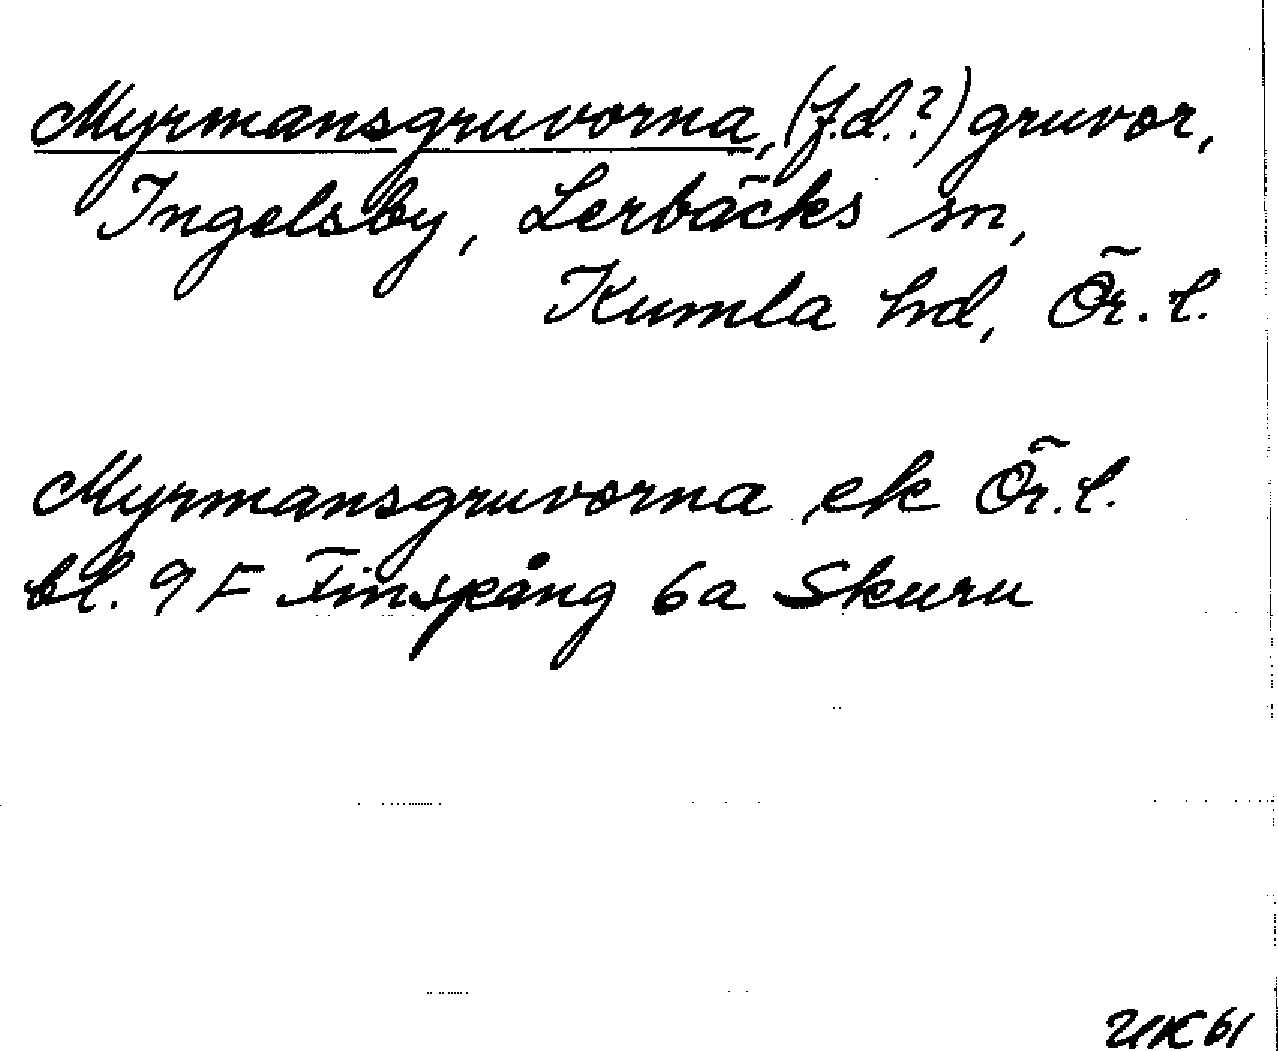 Myrmansgruvorna, (f.d.?) gruvor,
Ingelsby, Lerbäcks sn,
Kumla hd, Ör. l.
Myrmansgruvorna ek Ör. l.
bl. 9 F Finspång 6a Skuru
UK 61